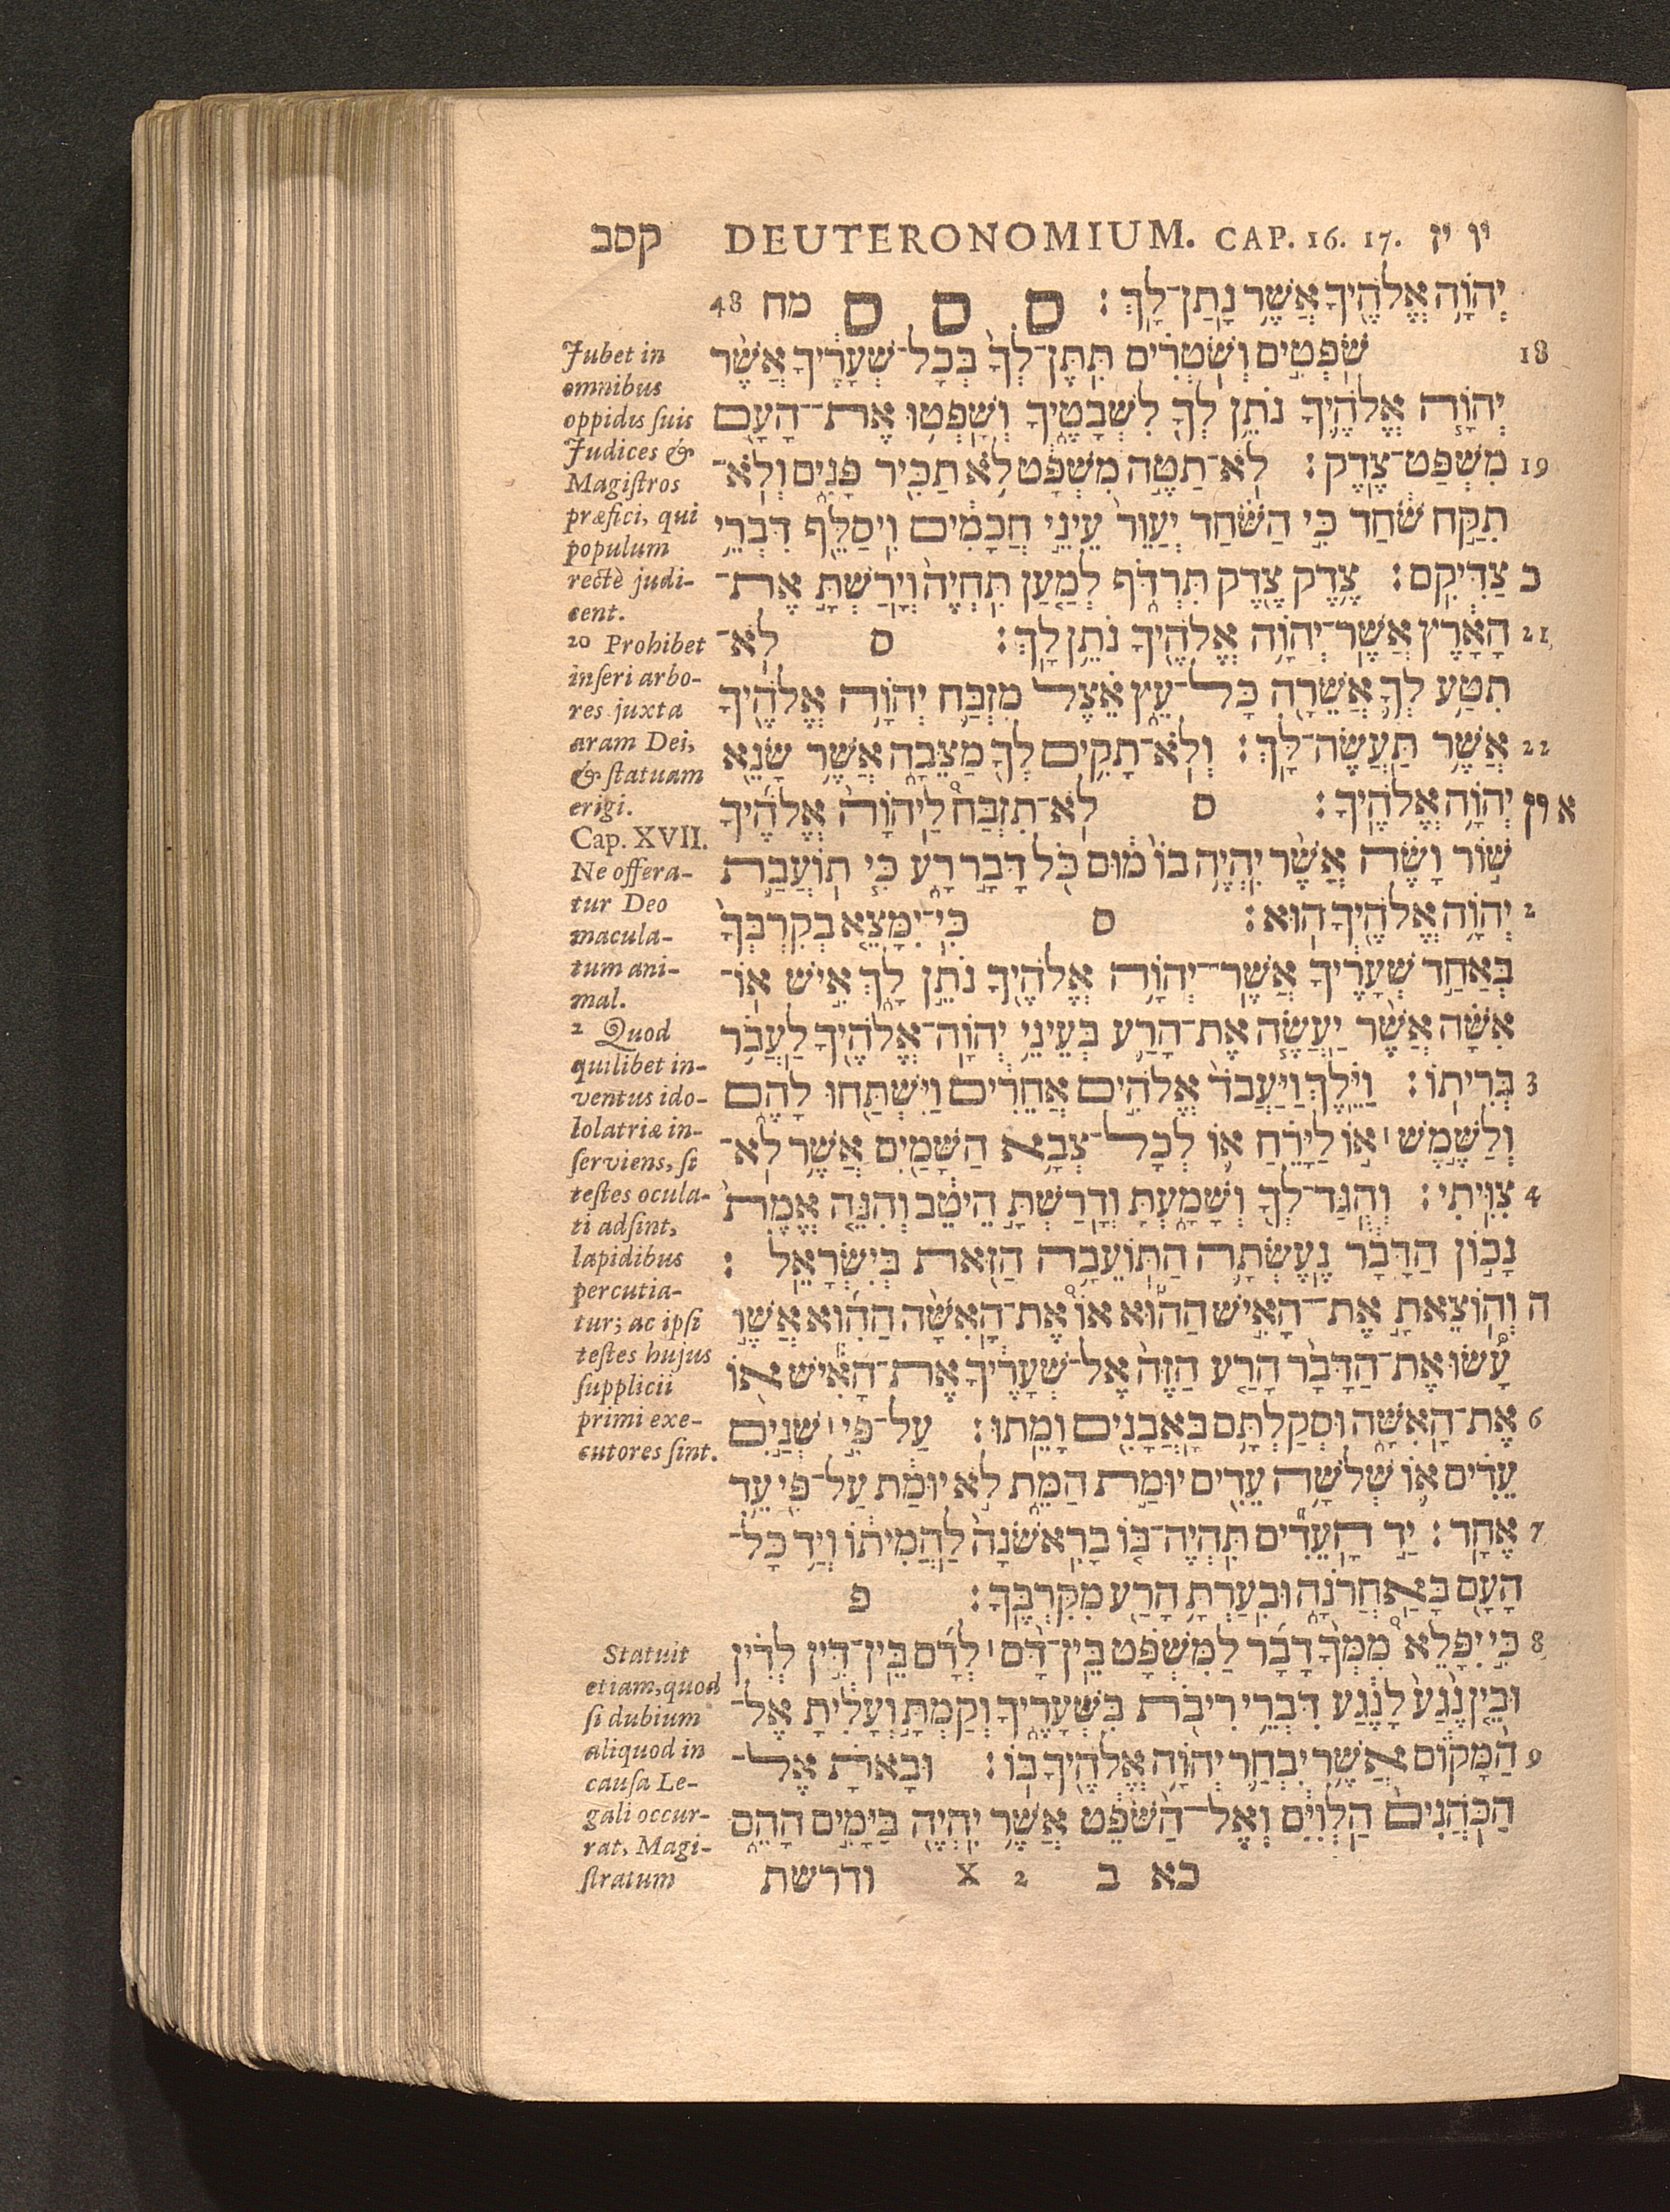 קסב DEUTERONOMIUM. CAP. 16. 17. יו יז
יְהוָ֥ה אֱלֹהֶ֖יךָ אֲשֶׁ֥ר נָֽתַן־לָֽךְ׃ ס ס ס מח 48
18 שֹׁפְטִ֣ים וְשֹֽׁטְרִ֗ים תִּֽתֶּן־לְךָ֙ בְּכָל־שְׁעָרֶ֔יךָ אֲשֶׁ֨ר
יְהוָ֧ה אֱלֹהֶ֛יךָ נֹתֵ֥ן לְךָ֖ לִשְׁבָטֶ֑יךָ וְשָׁפְט֥וּ אֶת־הָעָ֖ם
19 מִשְׁפַּט־צֶֽדֶק׃ לֹֽא־תַטֶּ֣ה מִשְׁפָּ֔ט לֹ֥א תַכִּ֖יר פָּנִ֑ים וְלֹֽא־
תִקַּ֣ח שֹׁ֔חַד כִּ֣י הַשֹּׁ֗חַד יְעַוֵּר֙ עֵינֵ֣י חֲכָמִ֔ים וִֽיסַלֵּ֖ף דִּבְרֵ֥י
כ צַדִּיקִֽם׃ צֶ֥דֶק צֶ֖דֶק תִּרְדֹּ֑ף לְמַ֤עַן תִּֽחְיֶה֙ וְיָֽרַשְׁתָּ֣ אֶת־
21 הָאָ֔רֶץ אֲשֶׁר־יְהוָ֥ה אֱלֹהֶ֖יךָ נֹתֵ֥ן לָֽךְ׃ ס לֹֽא־
תִטַּ֥ע לְךָ֛ אֲשֵׁרָ֖ה כָּל־עֵ֑ץ אֵ֗צֶל מִזְבַּ֛ח יְהוָ֥ה אֱלֹהֶ֖יךָ
22 אֲשֶׁ֥ר תַּֽעֲשֶׂה־לָּֽךְ׃ וְלֹֽא־תָקִ֥ים לְךָ֖ מַצֵּבָ֑ה אֲשֶׁ֥ר שָׂנֵ֖א
א יז יְהוָ֥ה אֱלֹהֶֽיךָ׃ ס לֹֽא־תִזְבַּח֩ לַֽיהוָ֨ה אֱלֹהֶ֜יךָ
שׁ֣וֹר וָשֶׂ֗ה אֲשֶׁ֨ר יִֽהְיֶ֥ה בוֹ֙ מ֔וּם כֹּ֖ל דָּבָ֣ר רָ֑ע כִּ֧י תֽוֹעֲבַ֛ת
2 יְהוָ֥ה אֱלֹהֶ֖יךָ הֽוּא׃ ס כִּֽי־יִמָּצֵ֤א בְקִרְבְּךָ֙
בְּאַחַ֣ד שְׁעָרֶ֔יךָ אֲשֶׁר־יְהוָ֥ה אֱלֹהֶ֖יךָ נֹתֵ֣ן לָ֑ךְ אִ֣ישׁ אֽוֹ־
אִשָּׁ֗ה אֲשֶׁ֨ר יַעֲשֶׂ֧ה אֶת־הָרַ֛ע בְּעֵינֵ֥י יְהוָֽה־אֱלֹהֶ֖יךָ לַֽעֲבֹ֥ר
3 בְּרִיתֽוֹ׃ וַיֵּ֗לֶךְ וַֽיַּעֲבֹד֙ אֱלֹהִ֣ים אֲחֵרִ֔ים וַיִּשְׁתַּ֖חוּ לָהֶ֑ם
וְלַשֶּׁ֣מֶשׁ׀ א֣וֹ לַיָּרֵ֗חַ א֛וֹ לְכָל־צְבָ֥א הַשָּׁמַ֖יִם אֲשֶׁ֥ר לֹֽא־
4 צִוִּֽיתִי׃ וְהֻֽגַּד־לְךָ֖ וְשָׁמָ֑עְתָּ וְדָֽרַשְׁתָּ֣ הֵיטֵ֔ב וְהִנֵּ֤ה אֱמֶת֙
נָכ֣וֹן הַדָּבָ֔ר נֶֽעֶשְׂתָ֛ה הַתּֽוֹעֵבָ֥ה הַזֹּ֖את בְּיִשְׂרָאֵֽל׃
ה וְהֽוֹצֵאתָ֣ אֶת־הָאִ֣ישׁ הַה֡וּא אוֹ֩ אֶת־הָֽאִשָּׁ֨ה הַהִ֜וא אֲשֶׁ֣ר
עָ֠שׂוּ אֶת־הַדָּבָ֨ר הָרָ֤ע הַזֶּה֙ אֶל־שְׁעָרֶ֔יךָ אֶת־הָאִ֕ישׁ א֖וֹ
6 אֶת־הָֽאִשָּׁ֑ה וּסְקַלְתָּ֥ם בָּֽאֲבָנִ֖ים וָמֵֽתוּ׃ עַל־פִּ֣י׀ שְׁנַ֣יִם
עֵדִ֗ים א֛וֹ שְׁלֹשָׁ֥ה עֵדִ֖ים יוּמַ֣ת הַמֵּ֑ת לֹ֣א יוּמַ֔ת עַל־פִּ֖י עֵ֥ד
7 אֶחָֽד׃ יַ֣ד הָֽעֵדִ֞ים תִּֽהְיֶה־בּ֤וֹ בָרִֽאשֹׁנָה֙ לַֽהֲמִית֔וֹ וְיַ֥ד כָּל־
הָעָ֖ם בָּאַֽחֲרֹנָ֑ה וּבִֽעַרְתָּ֥ הָרָ֖ע מִקִּרְבֶּֽךָ׃ פ
8 כִּ֣י יִפָּלֵא֩ מִמְּךָ֨ דָבָ֜ר לַמִּשְׁפָּ֗ט בֵּֽין־דָּ֨ם׀ לְדָ֜ם בֵּֽין־דִּ֣ין לְדִ֗ין
וּבֵ֥ין נֶ֙גַע֙ לָנֶ֔גַע דִּבְרֵ֥י רִיבֹ֖ת בִּשְׁעָרֶ֑יךָ וְקַמְתָּ֣ וְעָלִ֔יתָ אֶל־
9 הַ֨מָּק֔וֹם אֲשֶׁ֥ר יִבְחַ֛ר יְהוָ֥ה אֱלֹהֶ֖יךָ בּֽוֹ׃ וּבָאתָ֗ אֶל־
הַכֹּֽהֲנִים֙ הַלְוִיִּ֔ם וְאֶל־הַ֨שֹּׁפֵ֔ט אֲשֶׁ֥ר יִֽהְיֶ֖ה בַּיָּמִ֣ים הָהֵ֑ם
כא ב X 2 ודרשת
Jubet in
omnibus
oppidis ſuis
Judices &
Magiſtros
præfici, qui
populum
rectè judi-
cent.
20 Prohibet
inſeri arbo-
res juxta
aram Dei,
& ſtatuam
erigi.
Cap. XVII.
Ne offera-
tur Deo
macula-
tum ani-
mal.
2 Quod
quilibet in-
ventus ido-
lolatriæ in-
ſerviens, ſi
teſtes ocula-
ti adſint,
lapidibus
percutia-
tur; ac ipſi
teſtes hujus
ſupplicii
primi exe-
cutores ſint.
Statuit
etiam, quod
ſi dubium
aliquod in
cauſa Le-
gali occur-
rat, Magi-
ſtratum